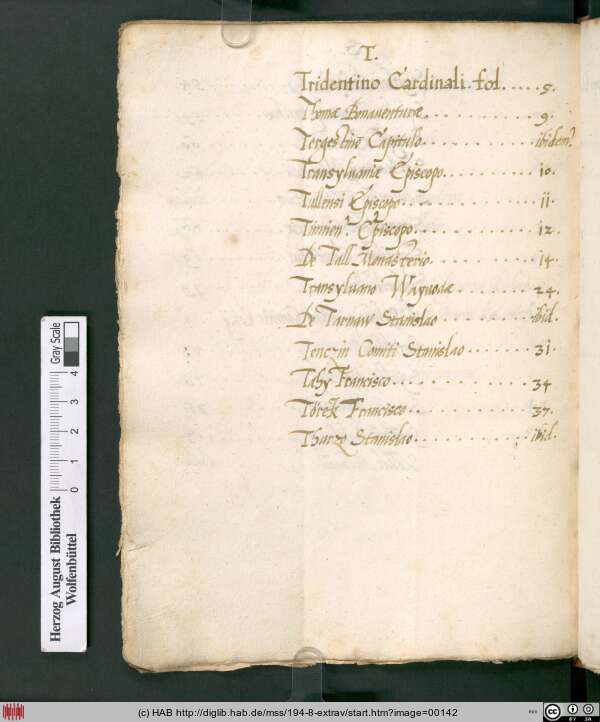 T.
Tridentino Cardinali fol. . . . . 5.
Thomæ Bonauenturæ . . . . . . . . 9.
Tergestinẽ Capitulo . . . . . . . . ibidem.
Transyluaniæ Episcopo . . . . . . . . 10.
Tullensi Episcopo . . . . . . . . 11.
Episcopo . . . . . . . . 12.
De Tall Monasterio . . . . . . . . 14.
Transyluano Wayuodæ . . . . . . . 24.
De Tarnaw Stanislao . . . . . . . ibid.
Tenczin Comiti Stanislao . . . . . . . 31.
Tahy Francisco . . . . . . . . 34
Török Francisco . . . . . . . . 37.
Thurzo Stanislao . . . . . . . . ibid.
Herzog August Bibliothek
Wolfenbüttel
0 1 2 3 4
Gray Scale
(c) HAB http://diglib.hab.de/mss/194-8-extrav/start.htm?image=00142
cc BY SA